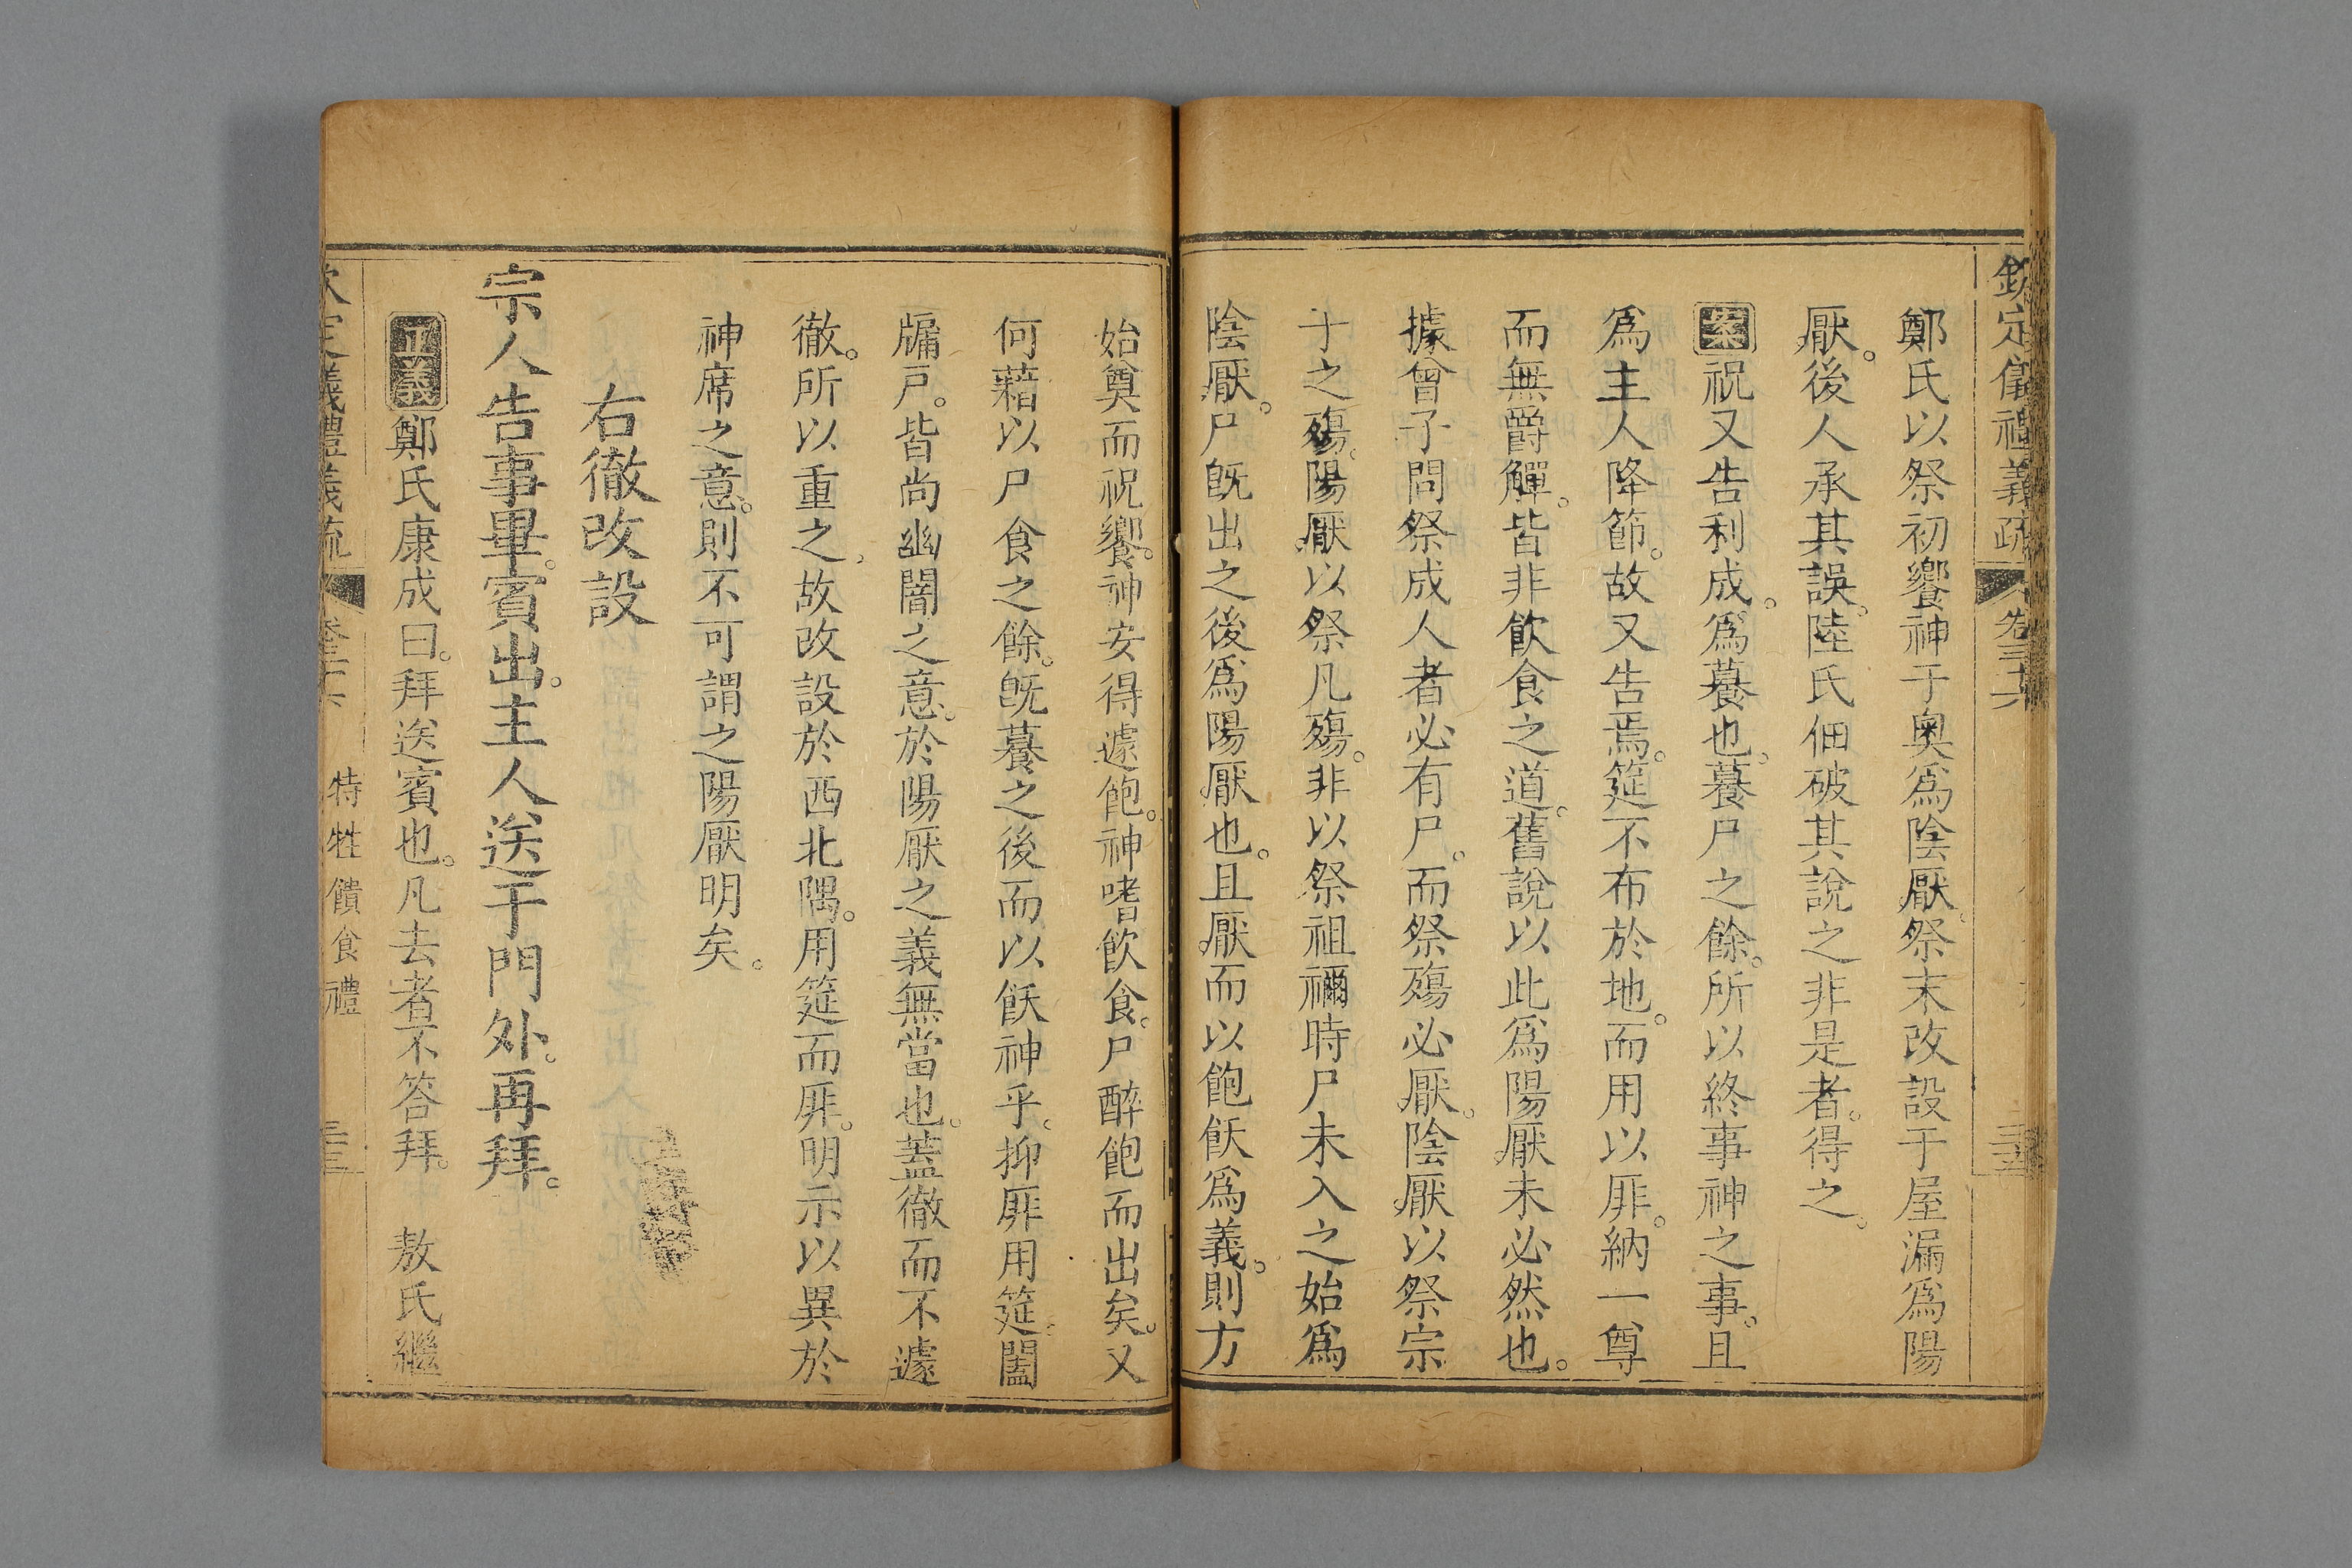 欽定儀禮義疏 卷三十六
鄭氏以祭初饗神于奧爲陰厭。祭末改設于屋漏爲陽
厭。後人承其誤。陸氏佃破其說之非是者。得之。
案祝又告利成。爲養也。養尸之餘。所以終事神之事。且
爲主人降節。故又告焉。筵不布於地。而用以厞。納一尊
而無爵觶。皆非飮食之道。舊說以此爲陽厭。未必然也。
據曾子問祭成人者必有尸。而祭殤必厭。陰厭以祭宗
子之殤。陽厭以祭凡殤。非以祭祖禰時尸未入之始爲
陰厭。尸旣出之後爲陽厭也。且厭而以飽飫爲義。則方
始奠而祝饗。神安得遽飽。神嗜飮食。尸醉飽而出矣。又
何藉以尸食之餘。旣養之後而以飫神乎。抑厞用筵。闔
牖戶。皆尙幽闇之意。於陽厭之義無當也。蓋徹而不遽
徹。所以重之。故改設於西北隅。用筵而厞。明示以異於
神席之意。則不可謂之陽厭明矣。
右徹改設
宗人告事畢。賓出。主人送于門外。再拜。
正義鄭氏康成曰。拜送賓也。凡去者不答拜。 敖氏繼
欽定儀禮義疏 卷三十六 特牲饋食禮